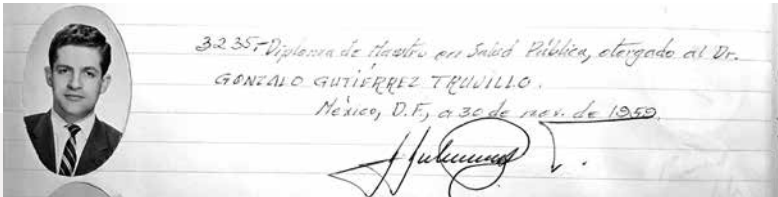 3235,- Diploma de Maestro en Salud Pública, otorgado al Dr.
GONZALO GUTIÉRREZ TRUJILLO.
México, D.F., a 30 de nov. de 1959.